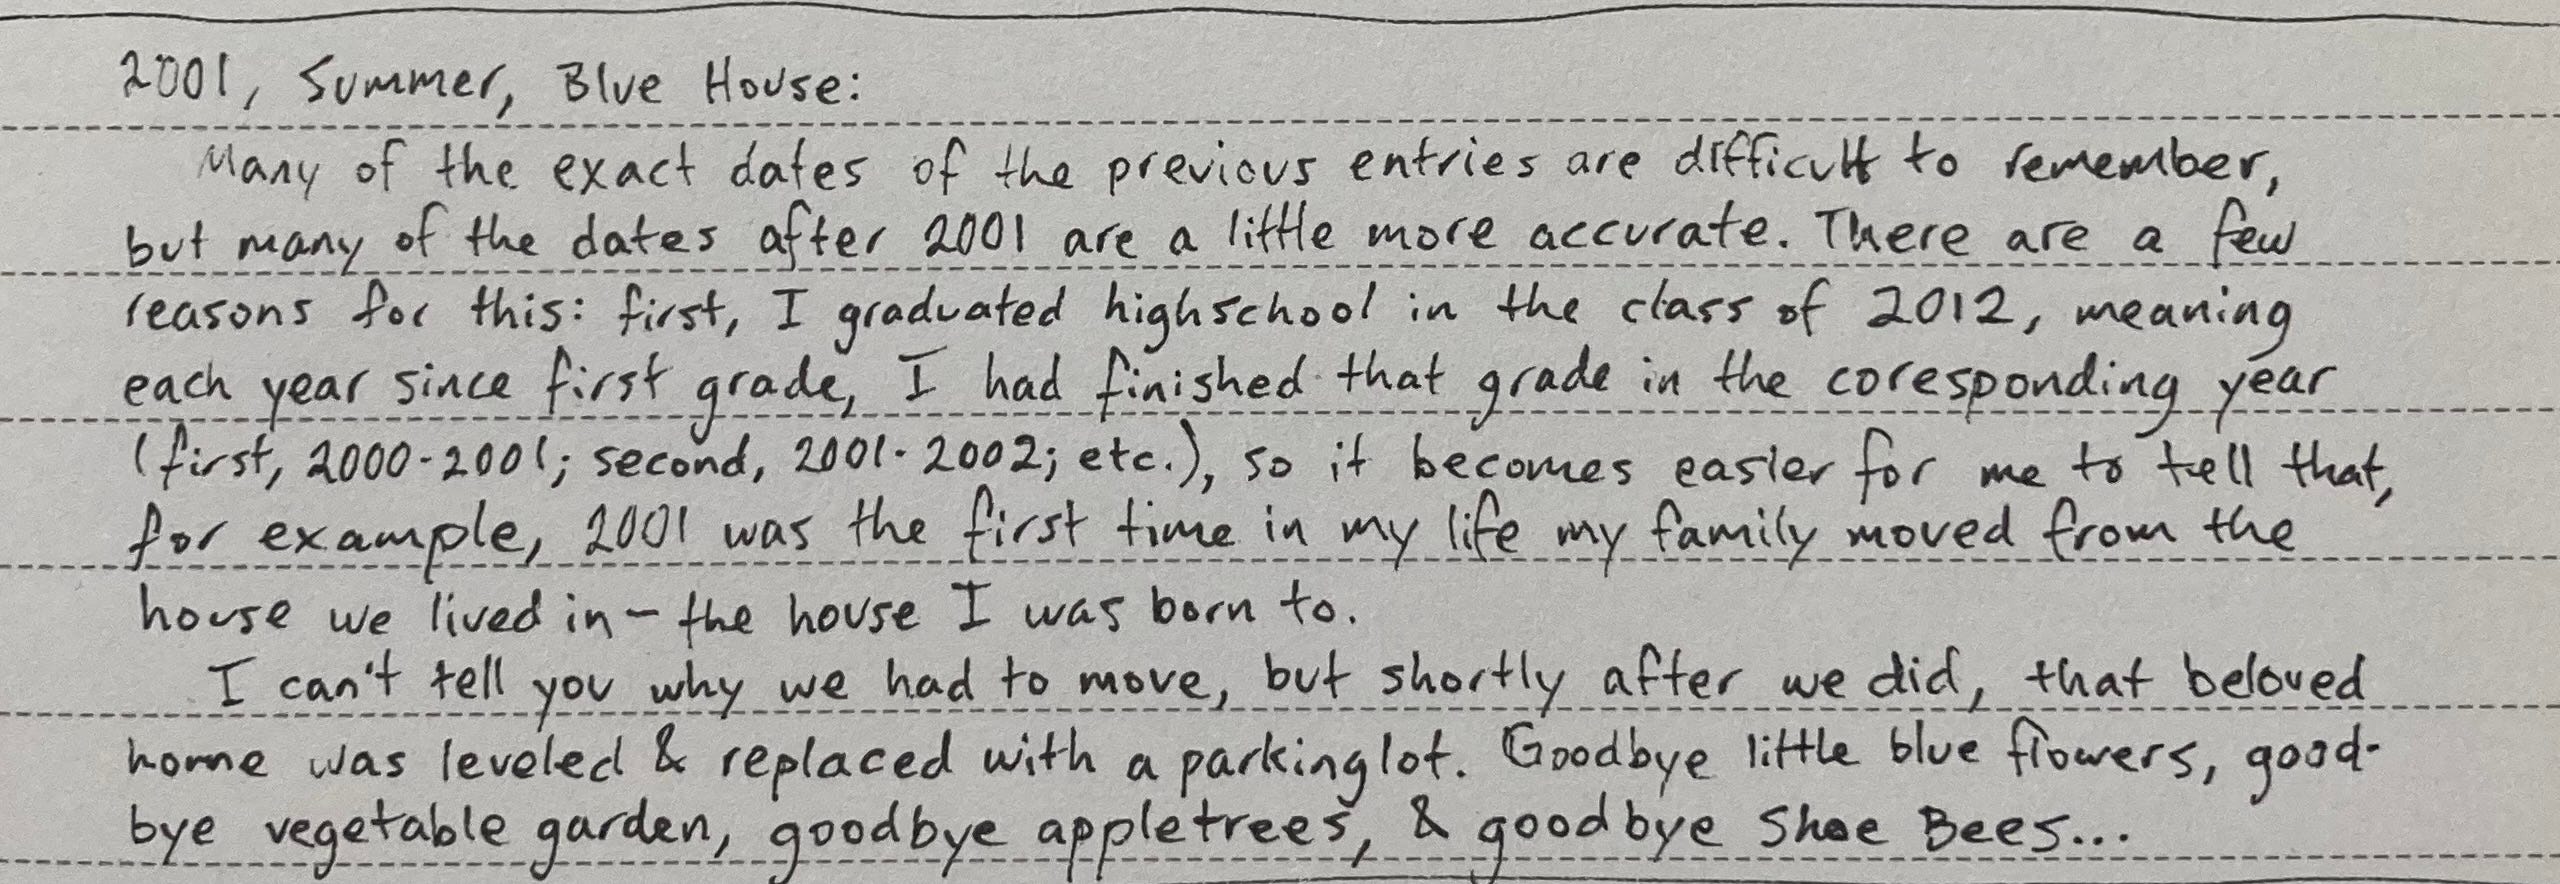 2001, Summer, Blue House:
Many of the exact dates of the previous entries are difficult to remember,
but many of the dates after 2001 are a little more accurate. There are a few
reasons for this: first, I graduated highschool in the class of 2012, meaning
each year since first grade, I had finished that grade in the coresponding year
(first, 2000-2001; second, 2001-2002; etc.), so it becomes easier for me to tell that,
for example, 2001 was the first time in my life my family moved from the
house we lived in - the house I was born to.
I can't tell you why we had to move, but shortly after we did, that beloved
home was leveled & replaced with a parkinglot. Goodbye little blue flowers, good-
bye vegetable garden, goodbye appletrees, & goodbye Shoe Bees...